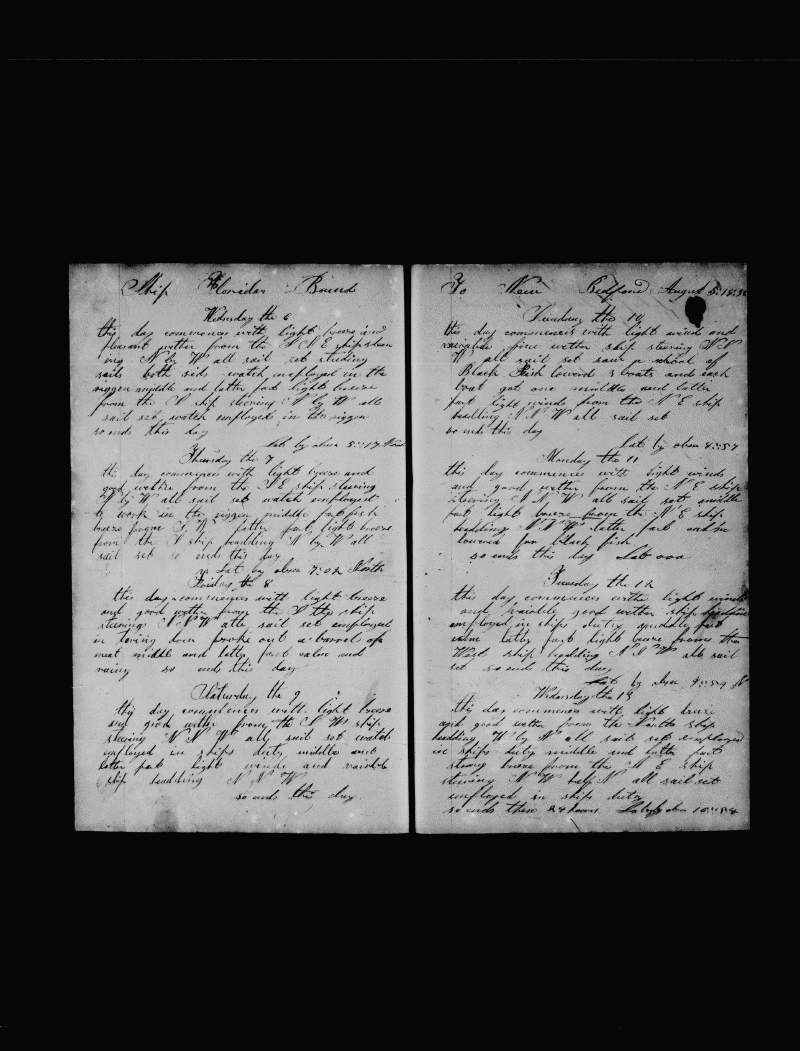 Ship Florida Bound
Wednesday the 6
this day commences with light breeze and
pleasant wether from the S S E ship steer
ing N by W all sail set studing
sails both sids watch employed in the
riggen middle and latter part light breeze
from the S ship steering N by W all
sail set watch employed in the riggen
so ends this day
Lat by obser 5::17 North
Thursday the 7
this day commences with light breeze and
good wether from the S E ship steering
N by W all sail set watch employed
to work in the riggen middle part fresh
breeze from S W latter part light breeze
from the S ship headding N by W all
sail set so ends this day
Lat by obser 7::02 North
Friday the 8
this day commences with light breeze
and good wether from the S the ship
steering N N W all sail set employed
in down broke out a barrels of
meat middle and latter part calm and
rainy so ends this day
Saturday the 9
this day commences with light breeze
and good wether from the S W ship
steering N N W all sail set watch
employed in ships duty middle and
latter part light winds and variable
ship headding N N W
so ends this day
To New Bedford August 5:: 18::
Sunday the 10
this day commences with light wind and
fine wether ship steering N N
W all sail set saw a school of
Black Fish lowerd 3 boats and each
boat got one middle and latter
part light winds from the N E ship
headding N N W all sail set
so ends this day
Lat by obser 8::57
Monday the 11
this day commences with light winds
and good wether from the N E ship
steering N N W all sail set middle
part light breeze from the N E ship
headding N N W latter part calm
lowered for black fish
so ends this day Lat
Tuesday the 12
this day commences with light winds
and good wether ship headding
employed in ships dutey middle part
calm latter part light breeze from the
West ship headding N N W all sail
set so ends this day
Lat by obser 9::59 N
Wednesday the 13
this day commences with light breeze
and good wether from the North ship
headding W by N all sail set employed
in ships duty middle and latter part
strong breeze from the N E ship
steering N W half N all sail set
employed in ships duty
so ends these 24 hours Lat by obser 10::54